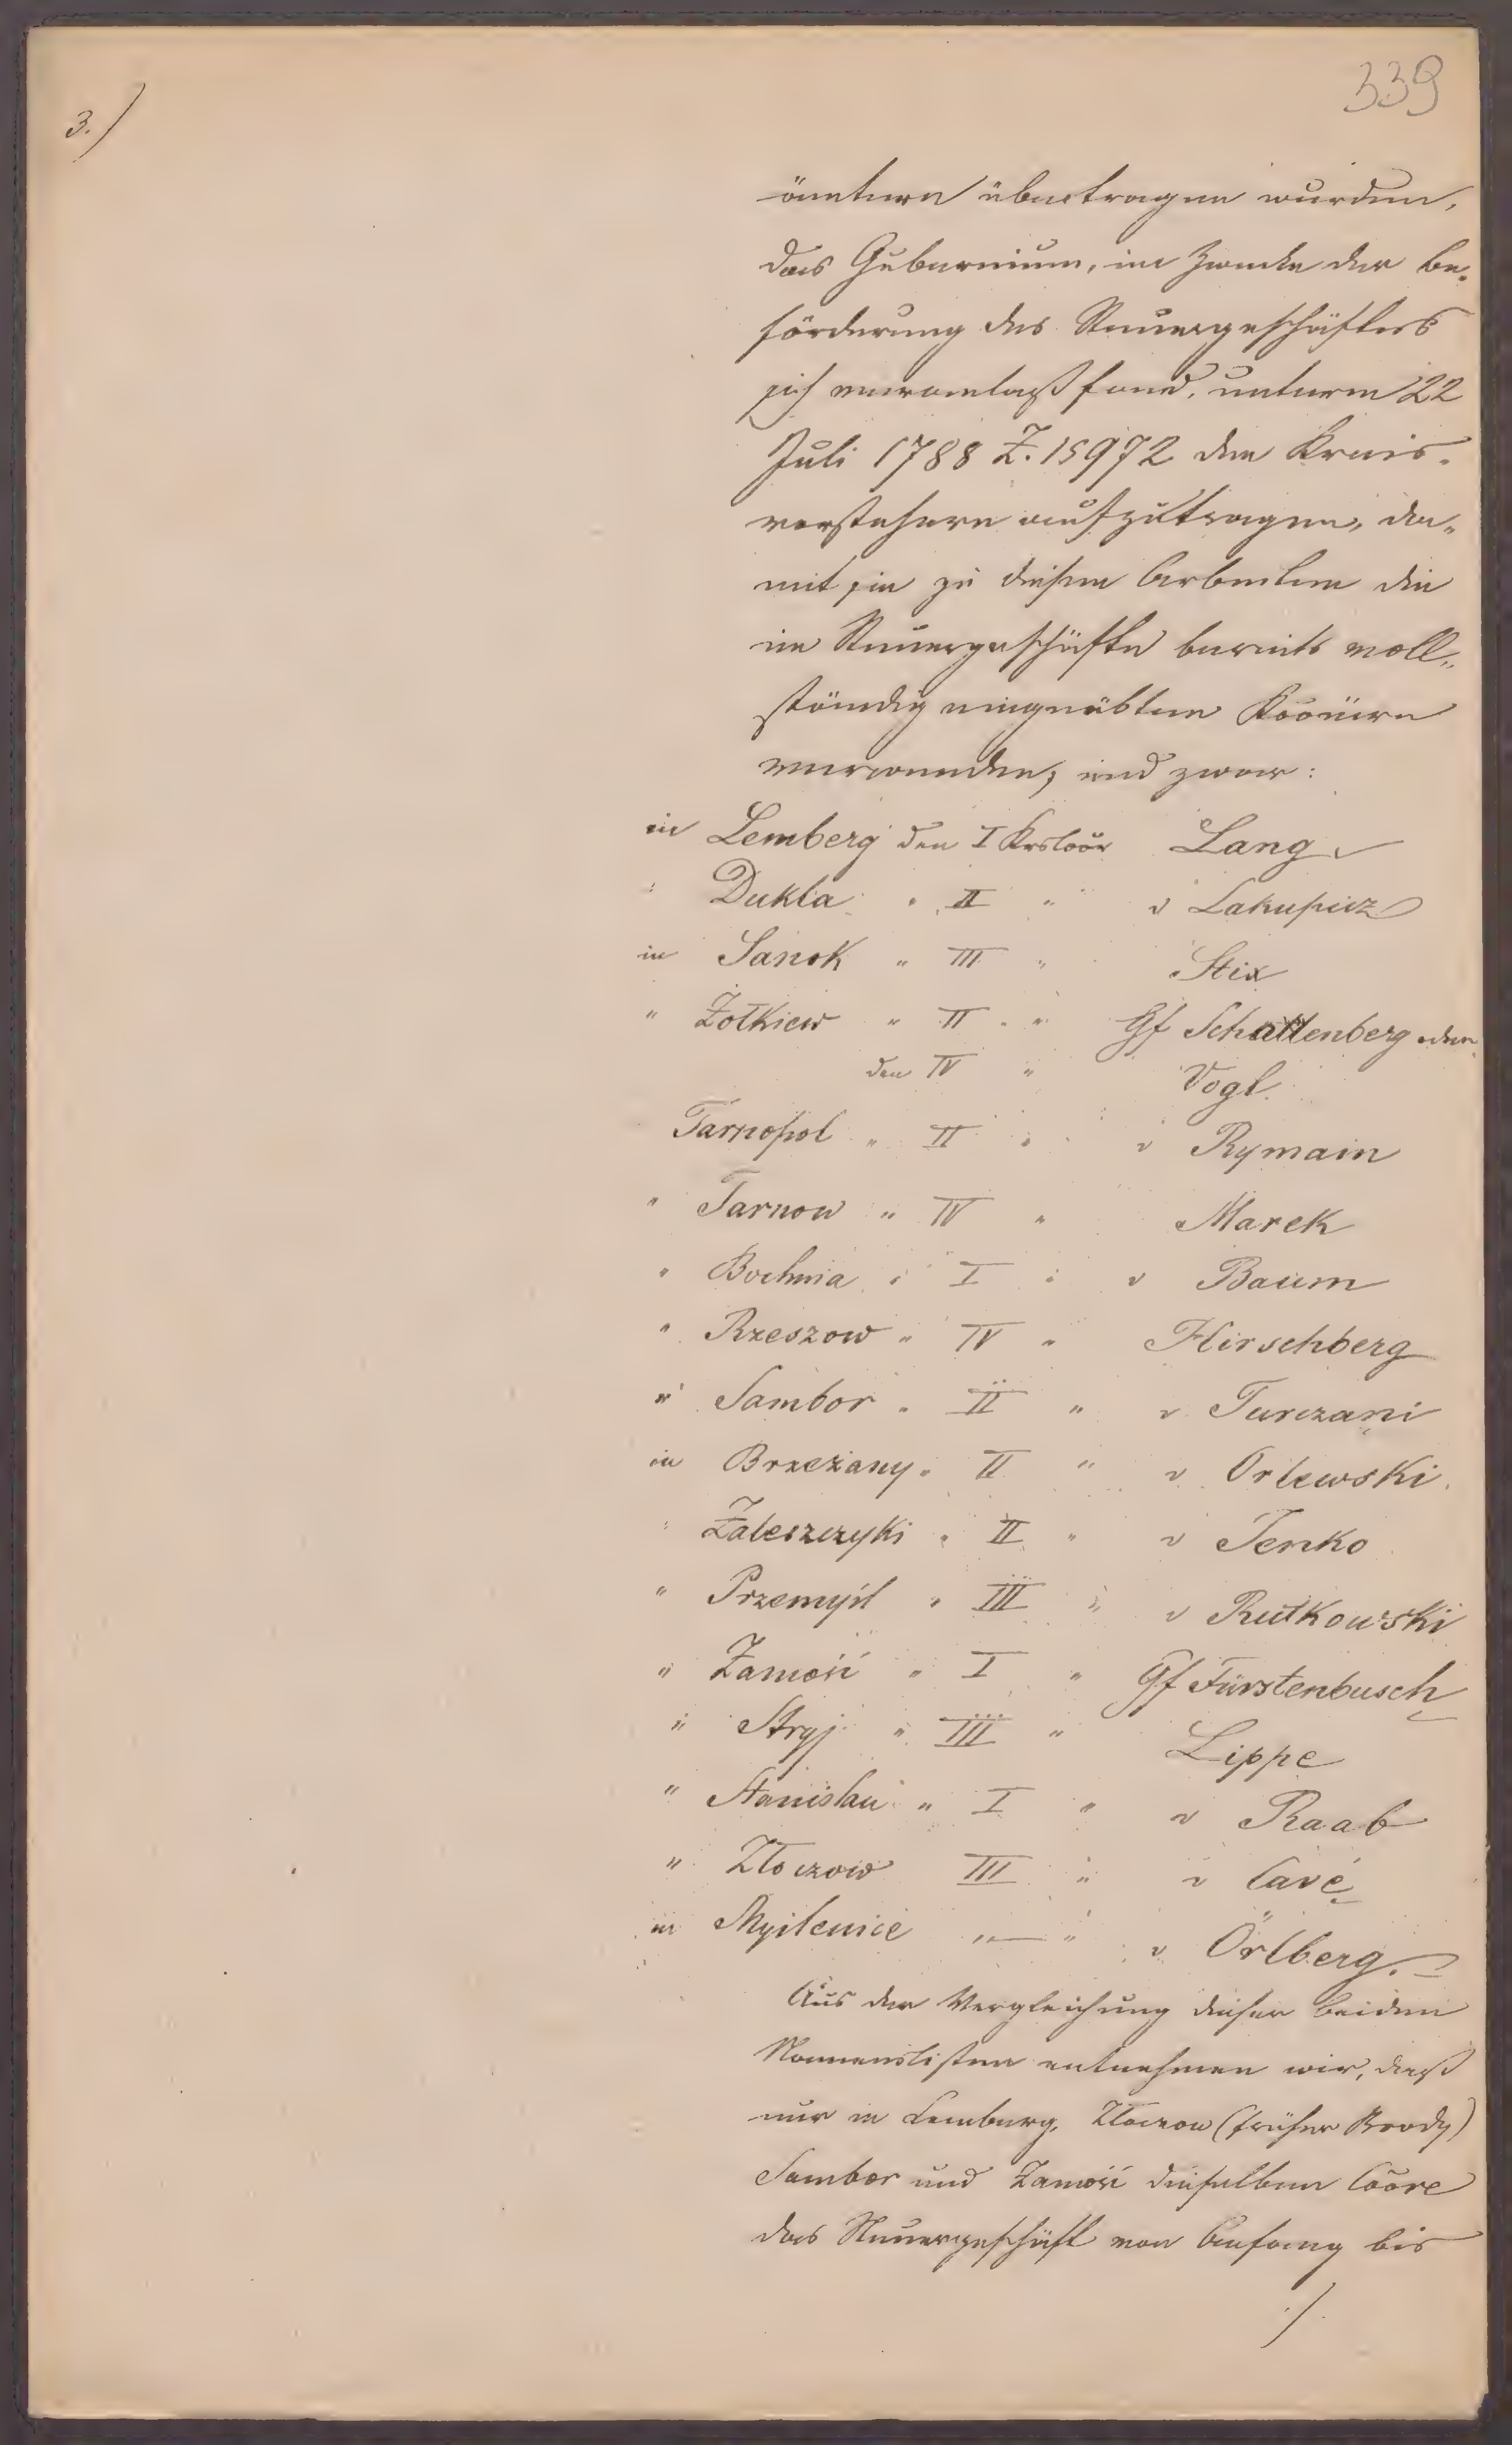 339
3.)
ämtern übertragen wurden,
das Gubernium, im Zwecke der Be„
förderung des Steuergeschäftes
sich veranlaßt fand, unterm 22
Juli 1788 Z. 15972 den Kreis„
vorstehern aufzutragen, da„
mit sie zu diesen Arbeiten die
im Steuergeschäfte bereits voll„
ständig eingeübten Kooären
verwenden, und zwar:
in Lemberg den I Krskoär Lang
" Dukla " II " v Lakupicz
in Sanok " III " Stix
" Żołkiew " II " Gf Schattenberg oder
den IV " Vogl
Tarnopol " II " v Rymain
" Tarnow " IV " Marek
" Bochnia " I " v Baum
" Rzeszow " IV " Hirschberg
" Sambor " II " v Turczani
in Brzeżany " II " v Orlewski
" Zaleszczyki " II " v Tenko
" Przemyśl " III " v Rutkowski
" Zamość " I " Gf Fürstenbusch
" Stryj " III " Lippe
" Stanislau " I " v Raab
" Złoczow III " v Cavé
in Myślenice " — " v Örlberg.
Aus der Vergleichung dieser beiden
Namenslisten entnehmen wir, daß
nur in Lemberg, Złoczow (früher Brody)
Sambor und Zamość dieselben Coöre
das Steuergeschäft von Anfang bis
./.